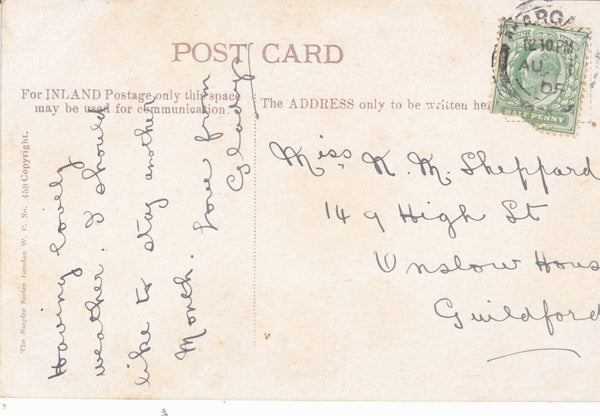 POST CARD
For INLAND Postage only this space
may be used for communication.
The ADDRESS only to be written he
MARGA
12.30 PM
AU
05
PENNY
Having lovely
weather. I should
like to stay another
Month. Love from
Gladys
Miss N. M. Sheppard
149 High St
Onslow Hous
Guildford
The Empire Series London W. C. No. 459 Copyright.